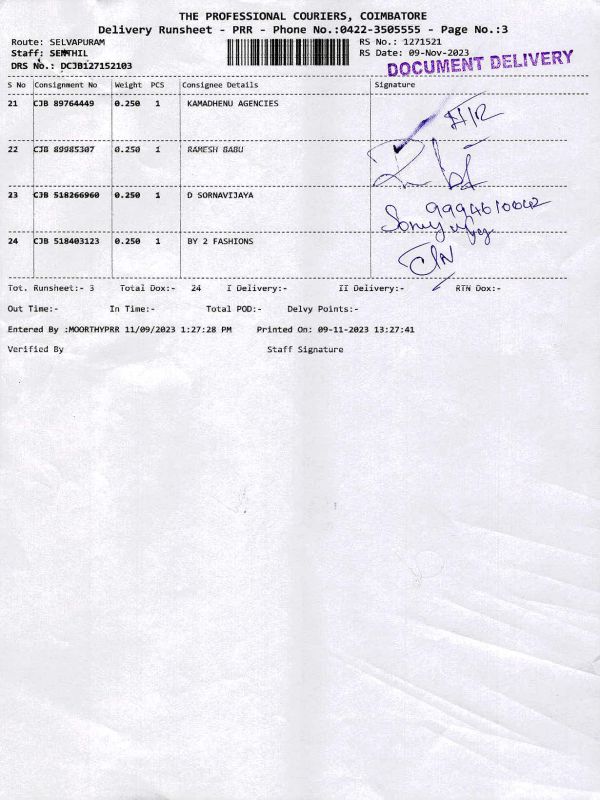 THE PROFESSIONAL COURIERS, COIMBATORE
Delivery Runsheet - PRR - Phone No.:0422-3505555 - Page No.:3
Route: SELVAPURAM RS No.: 1271521
Staff: SENTHIL RS Date: 09-Nov-2023
DRS No.: DCJB127152103 DOCUMENT DELIVERY
S No Consignment No Weight PCS Consignee Details Signature
21 CJB 89764449 0.250 1 KAMADHENU AGENCIES
22 CJB 89985307 0.250 1 RAMESH BABU
23 CJB 518266960 0.250 1 D SORNAVIJAYA
24 CJB 518403123 0.250 1 BY 2 FASHIONS
Tot. Runsheet:- 3 Total Dox:- 24 I Delivery:- II Delivery:- RTN Dox:-
Out Time:- In Time:- Total POD:- Delvy Points:-
Entered By :MOORTHYPRR 11/09/2023 1:27:28 PM Printed On: 09-11-2023 13:27:41
Verified By Staff Signature